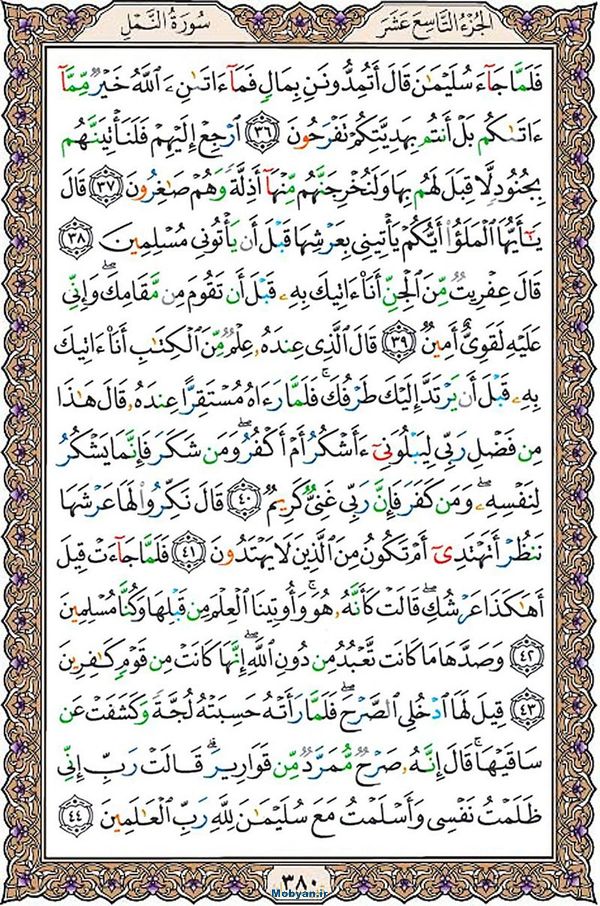 الجُزءُ التَّاسِعَ عَشَرَ
سُورَةُ النَّمْلِ
فَلَمَّا جَآءَ سُلَيْمَٰنَ قَالَ أَتُمِدُّونَنِ بِمَالٍ فَمَآ ءَاتَىٰنِۦَ ٱللَّهُ خَيْرٌ مِّمَّآ
ءَاتَىٰكُم بَلْ أَنتُم بِهَدِيَّتِكُمْ تَفْرَحُونَ ٣٦ ٱرْجِعْ إِلَيْهِمْ فَلَنَأْتِيَنَّهُم
بِجُنُودٍ لَّا قِبَلَ لَهُم بِهَا وَلَنُخْرِجَنَّهُم مِّنْهَآ أَذِلَّةً وَهُمْ صَٰغِرُونَ ٣٧ قَالَ
يَٰٓأَيُّهَا ٱلْمَلَؤُا۟ أَيُّكُمْ يَأْتِينِى بِعَرْشِهَا قَبْلَ أَن يَأْتُونِى مُسْلِمِينَ ٣٨
قَالَ عِفْرِيتٌ مِّنَ ٱلْجِنِّ أَنَا۠ ءَاتِيكَ بِهِۦ قَبْلَ أَن تَقُومَ مِن مَّقَامِكَ ۖ وَإِنِّى
عَلَيْهِ لَقَوِىٌّ أَمِينٌ ٣٩ قَالَ ٱلَّذِى عِندَهُۥ عِلْمٌ مِّنَ ٱلْكِتَٰبِ أَنَا۠ ءَاتِيكَ
بِهِۦ قَبْلَ أَن يَرْتَدَّ إِلَيْكَ طَرْفُكَ ۚ فَلَمَّا رَءَاهُ مُسْتَقِرًّا عِندَهُۥ قَالَ هَٰذَا
مِن فَضْلِ رَبِّى لِيَبْلُوَنِىٓ ءَأَشْكُرُ أَمْ أَكْفُرُ ۖ وَمَن شَكَرَ فَإِنَّمَا يَشْكُرُ
لِنَفْسِهِۦ ۖ وَمَن كَفَرَ فَإِنَّ رَبِّى غَنِىٌّ كَرِيمٌ ٤٠ قَالَ نَكِّرُوا۟ لَهَا عَرْشَهَا
نَنظُرْ أَتَهْتَدِىٓ أَمْ تَكُونُ مِنَ ٱلَّذِينَ لَا يَهْتَدُونَ ٤١ فَلَمَّا جَآءَتْ قِيلَ
أَهَٰكَذَا عَرْشُكِ ۖ قَالَتْ كَأَنَّهُۥ هُوَ ۚ وَأُوتِينَا ٱلْعِلْمَ مِن قَبْلِهَا وَكُنَّا مُسْلِمِينَ
٤٢ وَصَدَّهَا مَا كَانَت تَّعْبُدُ مِن دُونِ ٱللَّهِ ۖ إِنَّهَا كَانَتْ مِن قَوْمٍ كَٰفِرِينَ
٤٣ قِيلَ لَهَا ٱدْخُلِى ٱلصَّرْحَ ۖ فَلَمَّا رَأَتْهُ حَسِبَتْهُ لُجَّةً وَكَشَفَتْ عَن
سَاقَيْهَا ۚ قَالَ إِنَّهُۥ صَرْحٌ مُّمَرَّدٌ مِّن قَوَارِيرَ ۗ قَالَتْ رَبِّ إِنِّى
ظَلَمْتُ نَفْسِى وَأَسْلَمْتُ مَعَ سُلَيْمَٰنَ لِلَّهِ رَبِّ ٱلْعَٰلَمِينَ ٤٤
٣٨٠
Mobyan.ir